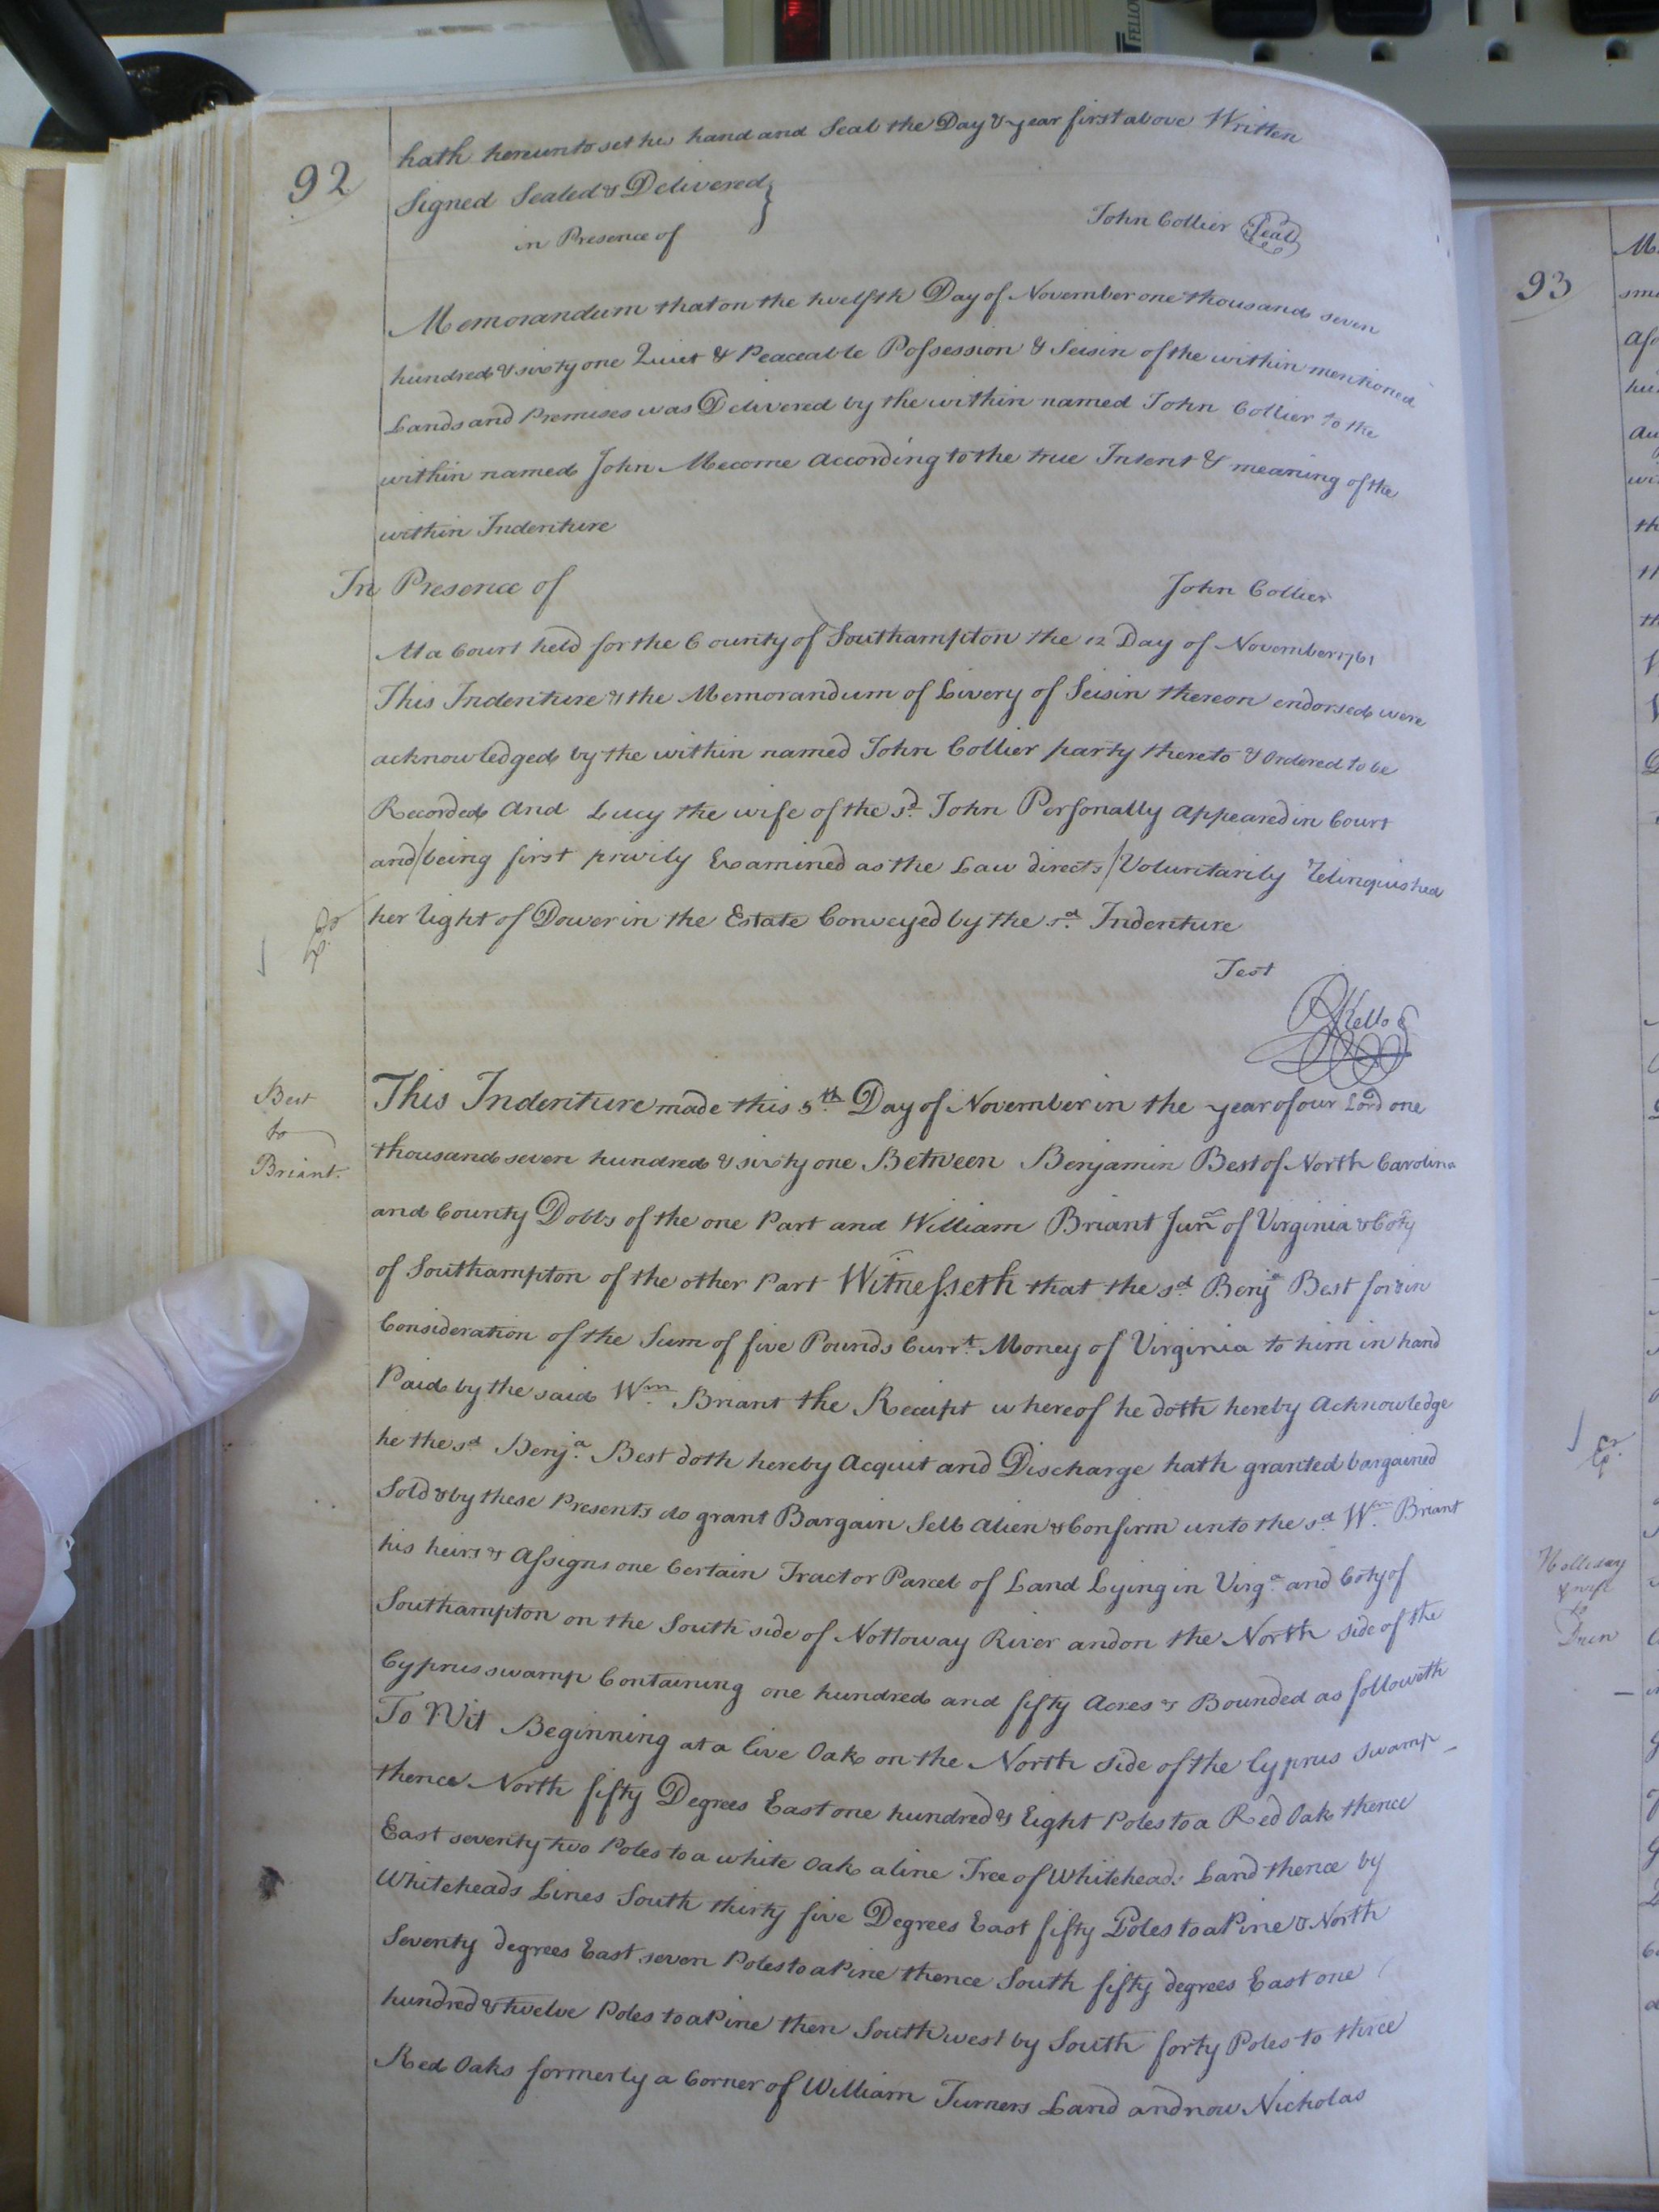 FELLO
92
hath hereunto set his hand and Seal the Day & year first above Written
Signed Sealed & Delivered }
in Presence of
John Collier Seal
Memorandum that on the twelfth Day of November one thousand seven
hundred & sixty one Quiet & Peaceable Possession & Seisin of the within mentioned
Lands and Premises was Delivered by the within named John Collier to the
within named John Mecome according to the true Intent & meaning of the
within Indenture
In Presence of
John Collier
At a Court held for the County of Southampton the 12 Day of November 1761
This Indenture & the Memorandum of Livery of Seisin thereon endorsed were
acknowledged by the within named John Collier party thereto & Ordered to be
Recorded And Lucy the wife of the sd. John Personally appeared in Court
and/being first privily Examined as the Law directs/Voluntarily relinquished
her right of Dower in the Estate Conveyed by the sd. Indenture
Test
R Kello
Best
to
Briant.
This Indenture made this 5th. Day of November in the year of our Lord one
thousand seven hundred & sixty one Between Benjamin Best of North Carolina
and County Dobbs of the one Part and William Briant Junr of Virginia & Coty
of Southampton of the other Part Witnesseth that the sd. Benja Best for & in
Consideration of the Sum of five Pounds Currt. Money of Virginia to him in hand
Paid by the said Wm. Briant the Receipt whereof he doth hereby Acknowledge
he the sd Benja. Best doth hereby Acquit and Discharge hath granted bargained
Sold & by these Presents do grant Bargain Sell Alien & Confirm unto the sd. Wm. Briant
his heirs & Assigns one Certain Tract or Parcel of Land Lying in Virga. and Coty of
Southampton on the South side of Nottoway River and on the North side of the
Cyprus swamp Containing one hundred and fifty Acres & Bounded as followeth
To Wit Beginning at a live Oak on the North side of the Cyprus swamp
thence North fifty Degrees East one hundred & Eight Poles to a Red Oak thence
East seventy two Poles to a white Oak a line Tree of Whiteheads Land thence by
Whiteheads Lines South thirty five Degrees East fifty Poles to a Pine & North
Seventy degrees East seven Poles to a Pine thence South fifty degrees East one
hundred & twelve Poles to a Pine then South west by South forty Poles to three
Red Oaks formerly a Corner of William Turners Land and now Nicholas
93
Holliday
& wife
to